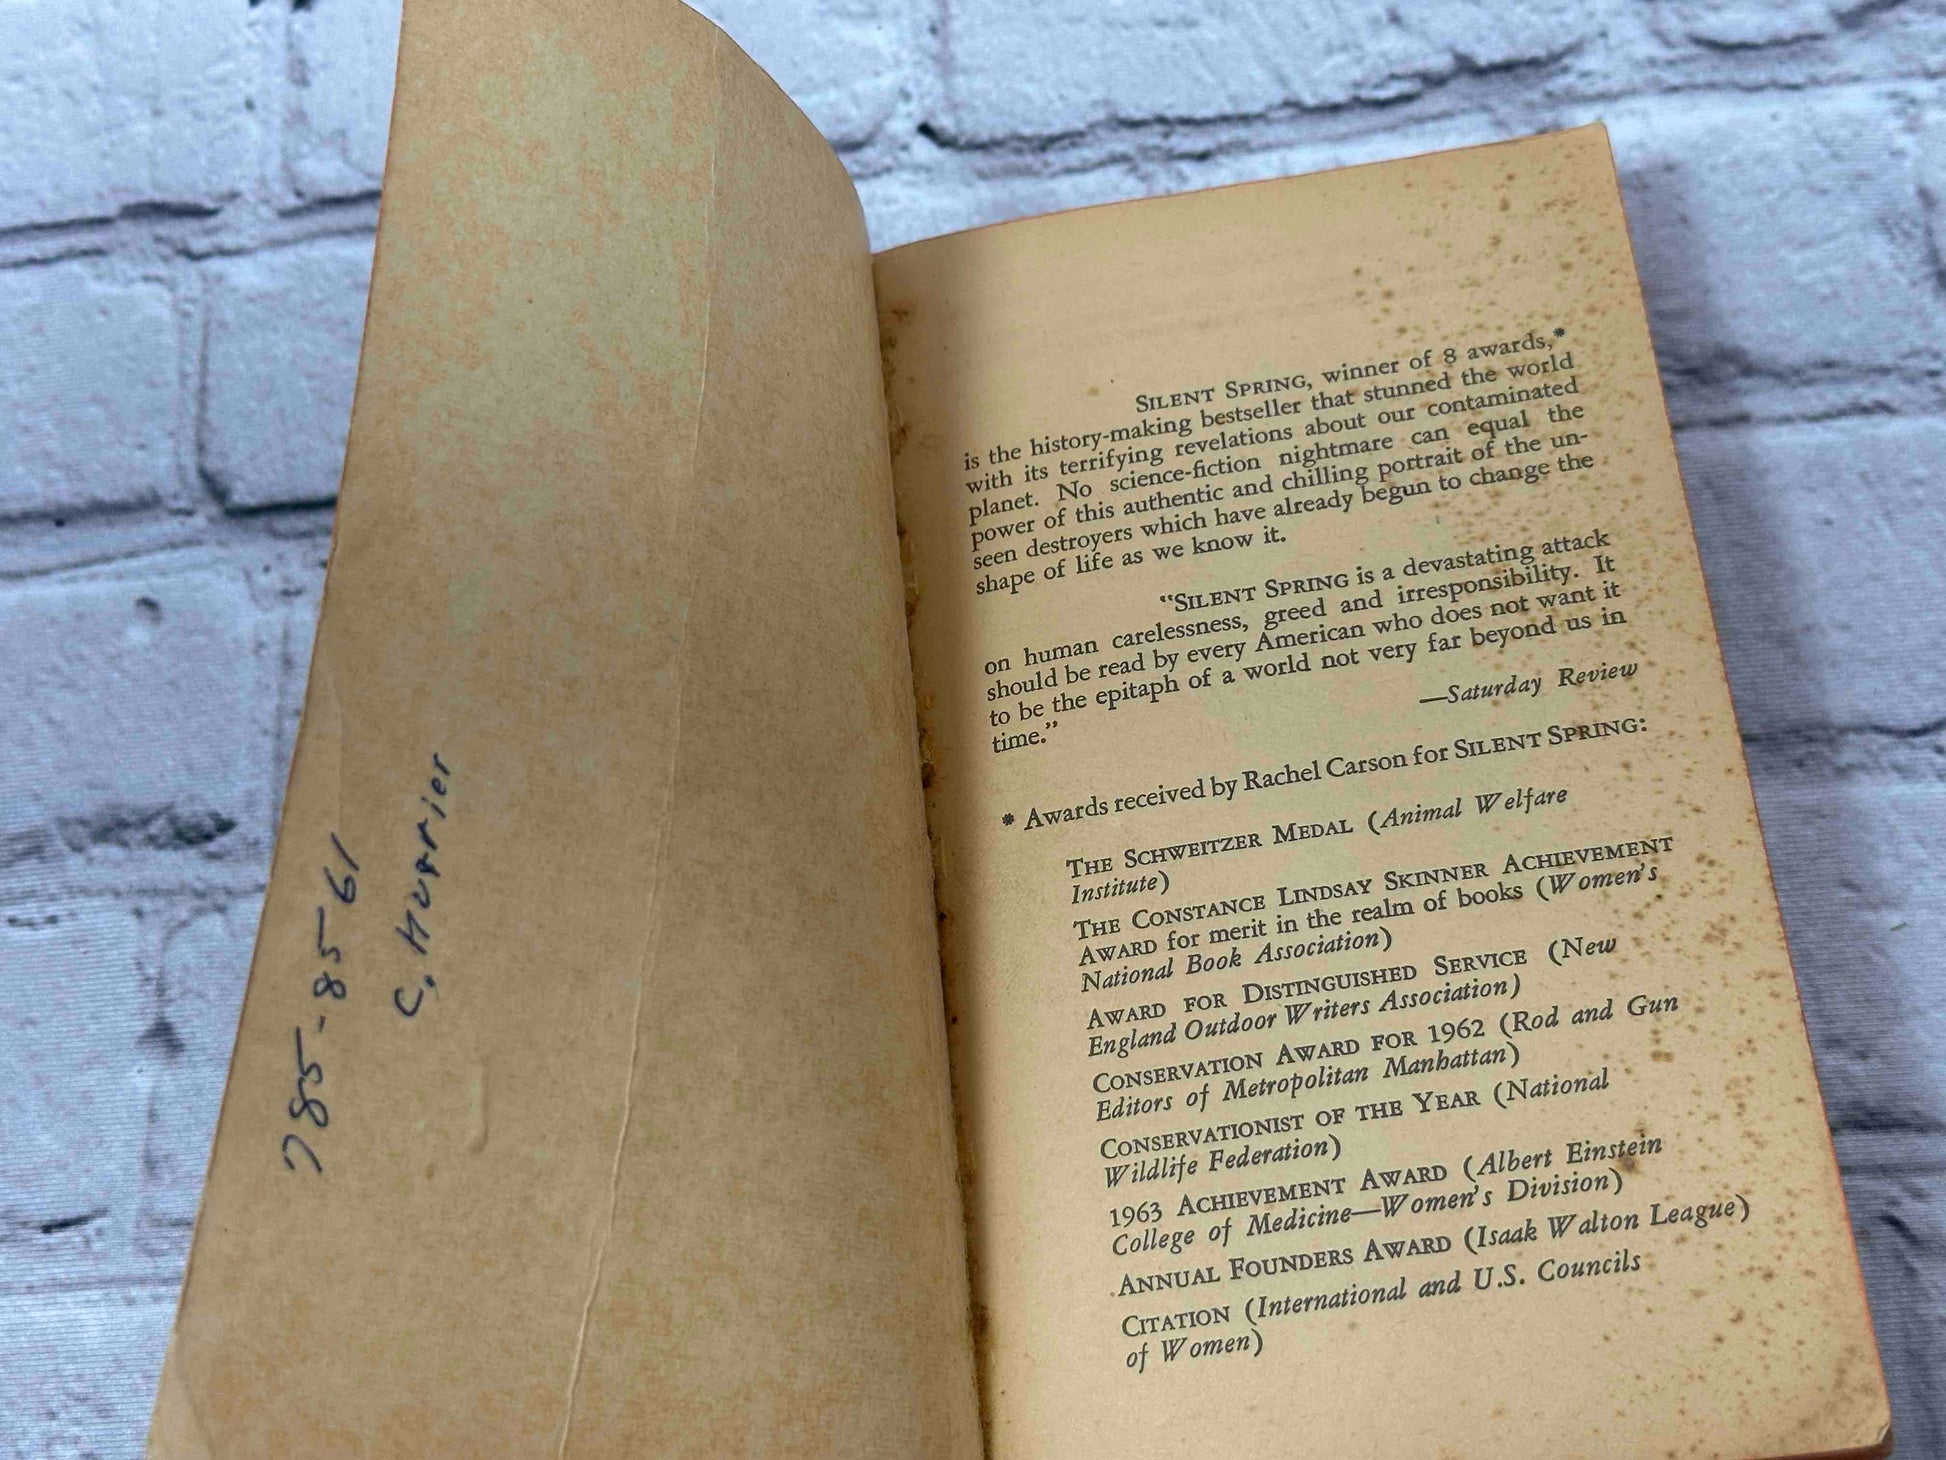 785-8561
C. Hurrier
SILENT SPRING, winner of 8 awards,*
is the history-making bestseller that stunned the world
with its terrifying revelations about our contaminated
planet. No science-fiction nightmare can equal the
power of this authentic and chilling portrait of the un-
seen destroyers which have already begun to change the
shape of life as we know it.
“SILENT SPRING is a devastating attack
on human carelessness, greed and irresponsibility. It
should be read by every American who does not want it
to be the epitaph of a world not very far beyond us in
time.”
—Saturday Review
* Awards received by Rachel Carson for SILENT SPRING:
THE SCHWEITZER MEDAL (Animal Welfare
Institute)
THE CONSTANCE LINDSAY SKINNER ACHIEVEMENT
AWARD for merit in the realm of books (Women's
National Book Association)
AWARD FOR DISTINGUISHED SERVICE (New
England Outdoor Writers Association)
CONSERVATION AWARD FOR 1962 (Rod and Gun
Editors of Metropolitan Manhattan)
CONSERVATIONIST OF THE YEAR (National
Wildlife Federation)
1963 ACHIEVEMENT AWARD (Albert Einstein
College of Medicine—Women's Division)
ANNUAL FOUNDERS AWARD (Isaak Walton League)
CITATION (International and U.S. Councils
of Women)